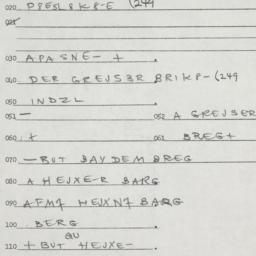 020 DPESL 8 KP-E (249
021
030 APASNE- +
040 DER GREJSER BRIKP-(249
050 INDZL
051 - 052 A GREJSER
060 + 061 BREG+
070 -BUT BAY DEM BREG
080 A HEJXE-R BARG
090 AFMJ HEJXNJ BARG
100 BERG
AU
110 + BUT HEJXE-